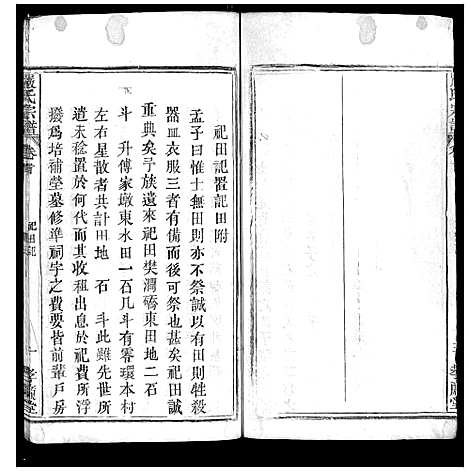 祀田記置祀田附
孟子曰惟士無田則亦不祭誠以有田則牲殺
器皿衣服三者有備而後可祭也甚矣祀田誠
重典矣予族遺來祀田樊澗礄東田地二石
斗 升傅家墩東水田一石几斗有零環本村
左右星散者共計田地 石 斗此雖先世所
遺未稔置於何代而其收租出息於祀費所浮
襏爲培補塋墓修準祠宇之費要皆前輩戶房
嚴氏宗譜 卷首
祀田記
一 孝
堂
氏宗譜
孝
堂